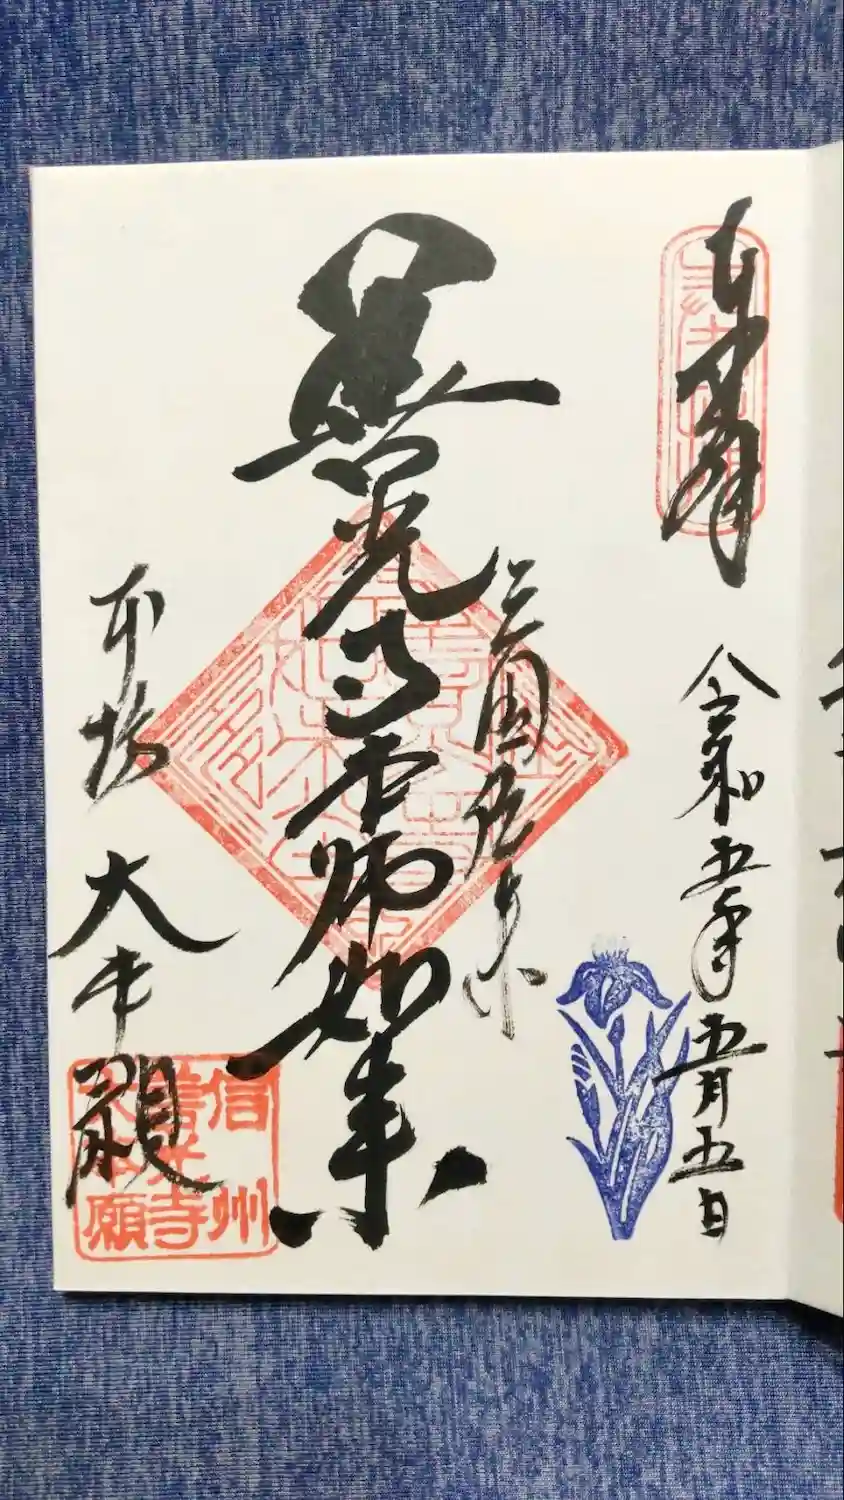 奉拝
令和五年五月五日
三国伝来
善光寺本師如来
本坊
大本願
信州
善光寺
大本願